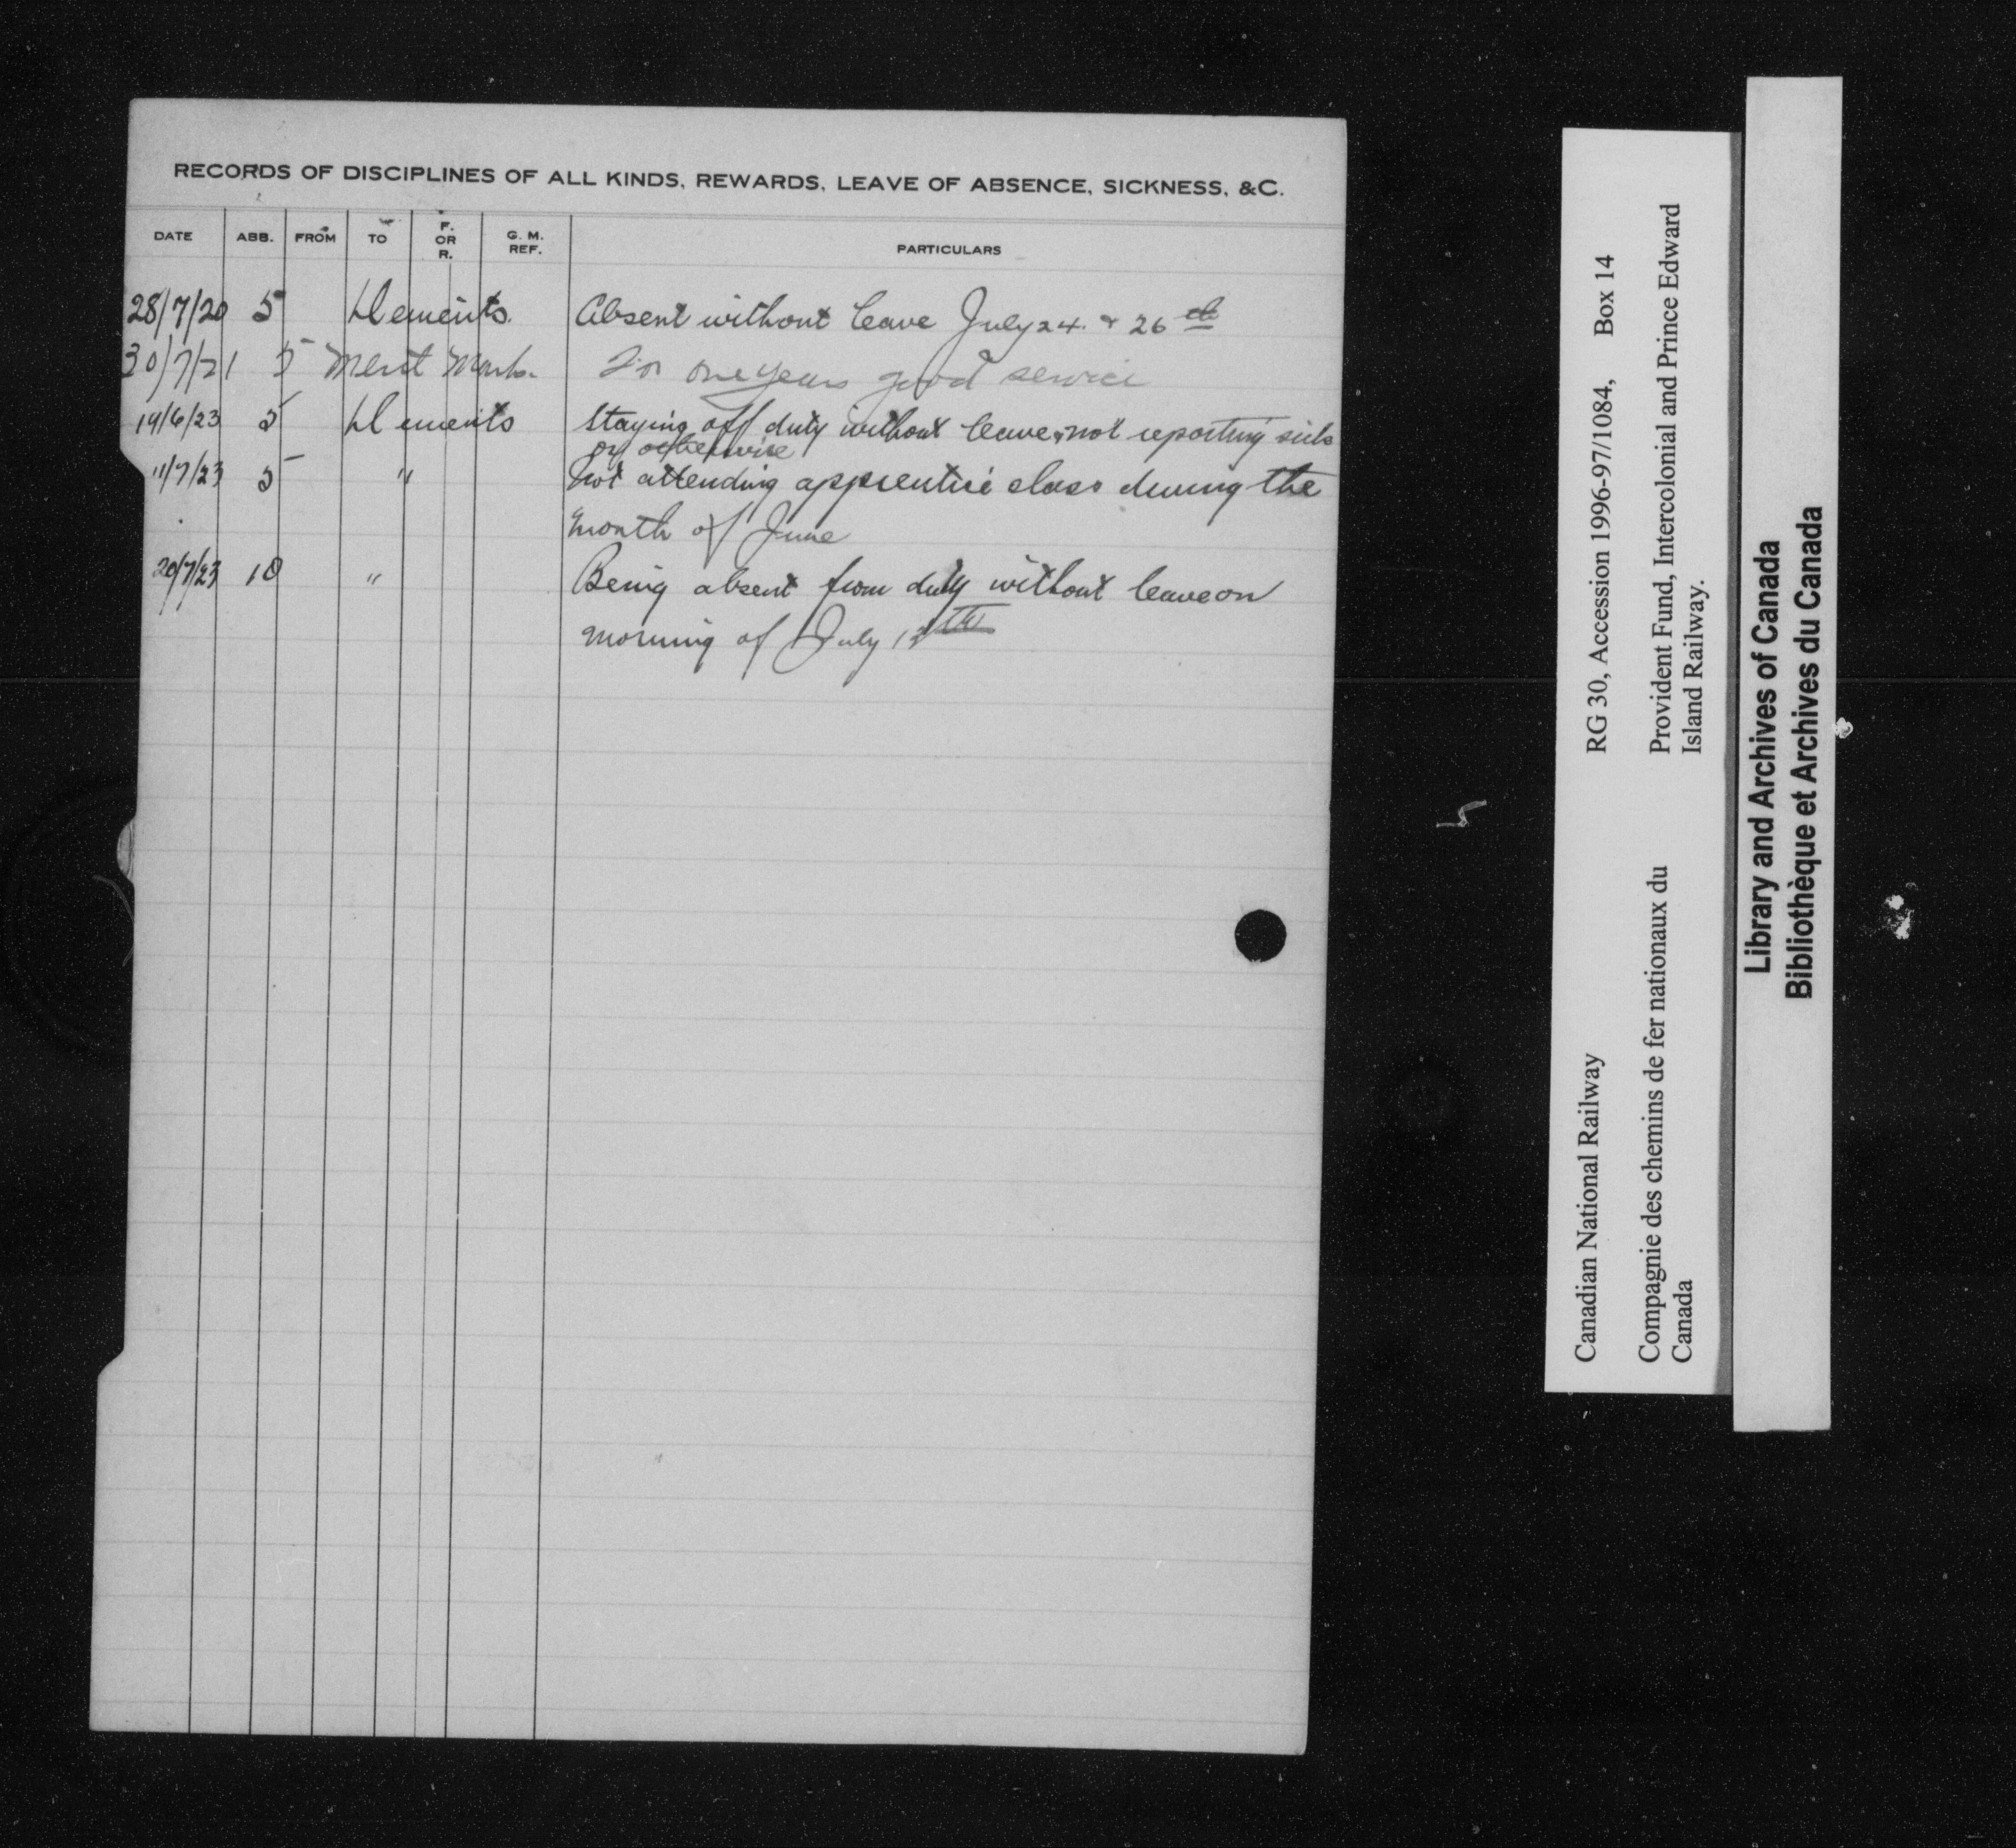 RECORDS OF DISCIPLINES OF ALL KINDS, REWARDS, LEAVE OF ABSENCE, SICKNESS, &C.
DATE ABB. FROM TO F. OR R. G. M. REF. PARTICULARS
28/7/20 5 Demerits. Absent without leave July 24. & 26th
30/7/21 5 Merit Marks. For one years good service
19/6/23 5 Demerits Staying off duty without leave & not reporting sick
or otherwise
11/7/23 5 " Not attending apprentice class during the
month of June
20/7/23 10 " Being absent from duty without leave on
morning of July 13th
Canadian National Railway RG 30, Accession 1996-97/1084, Box 14
Compagnie des chemins de fer nationaux du
Canada
Provident Fund, Intercolonial and Prince Edward
Island Railway.
Library and Archives of Canada
Bibliothèque et Archives du Canada